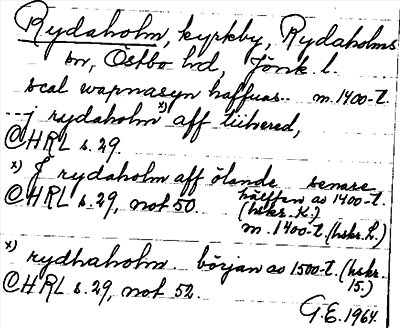 Rydaholm, kyrkby, Rydaholms
sn, Östbo hd, Jönk. l.
scal wapnasyn haffuas. m. 1400-t.
j rydaholm x) aff tiihered,
CHRL s. 29.
x) J rydaholm aff ölande senare
hälften av 1400-t.
CHRL s. 29, not 50. (hskr. K.)
m. 1400-t. (hskr. L.)
x) rydhaholm. början av 1500-t. (hskr.
15.)
CHRL s. 29, not 52.
G.E. 1964.